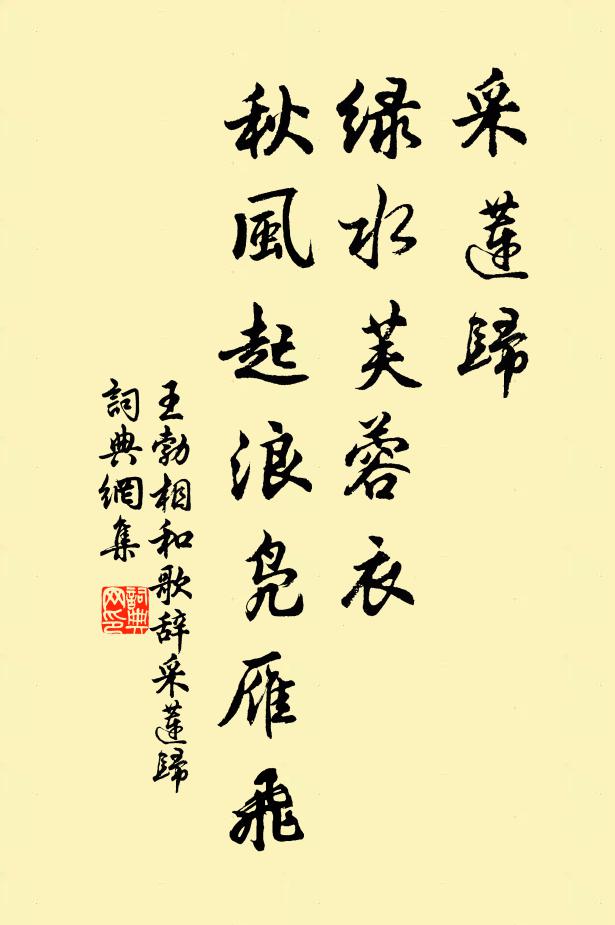 采蓮歸
绿水芙蓉衣
秋風起浪凫雁飛
王勃相和歌辞采蓮歸
詞典網集
詞典网印